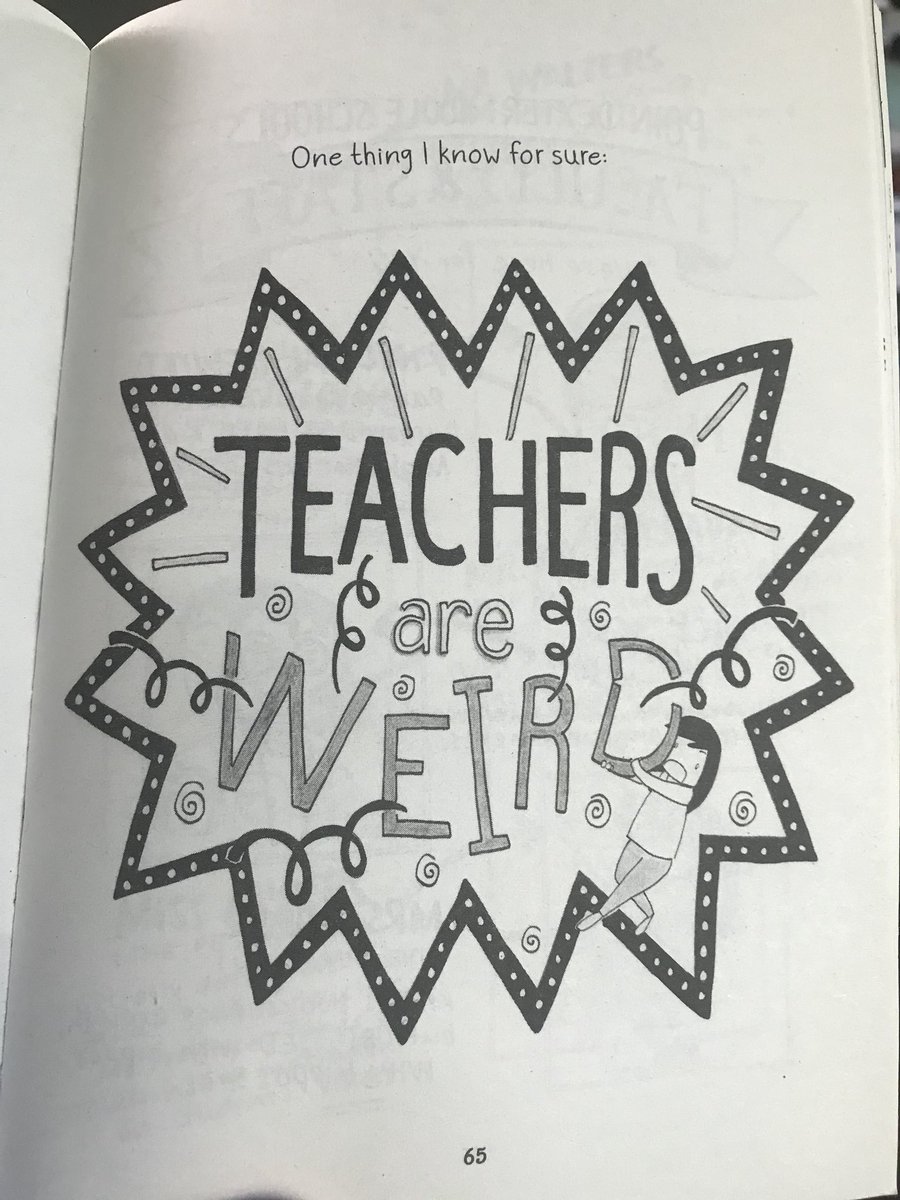 One thing I know for sure:
TEACHERS
are
WEIRD
65